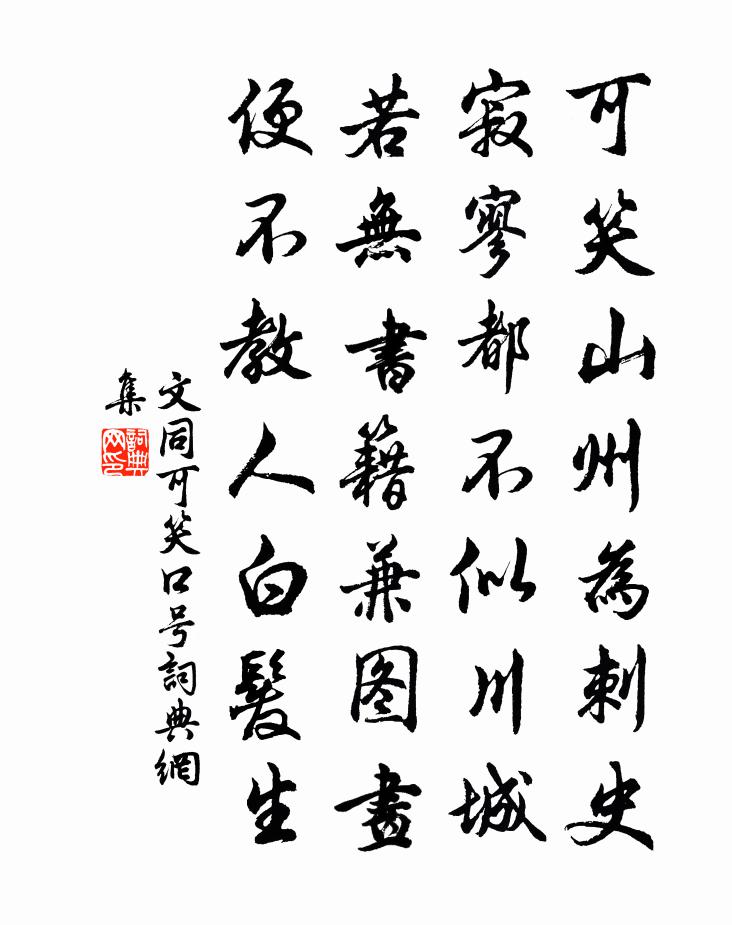 可笑山州為刺史
寂寥都不似川城
若無書籍兼图畫
便不教人白髮生
文同可笑口号詞典網
集
詞典網印